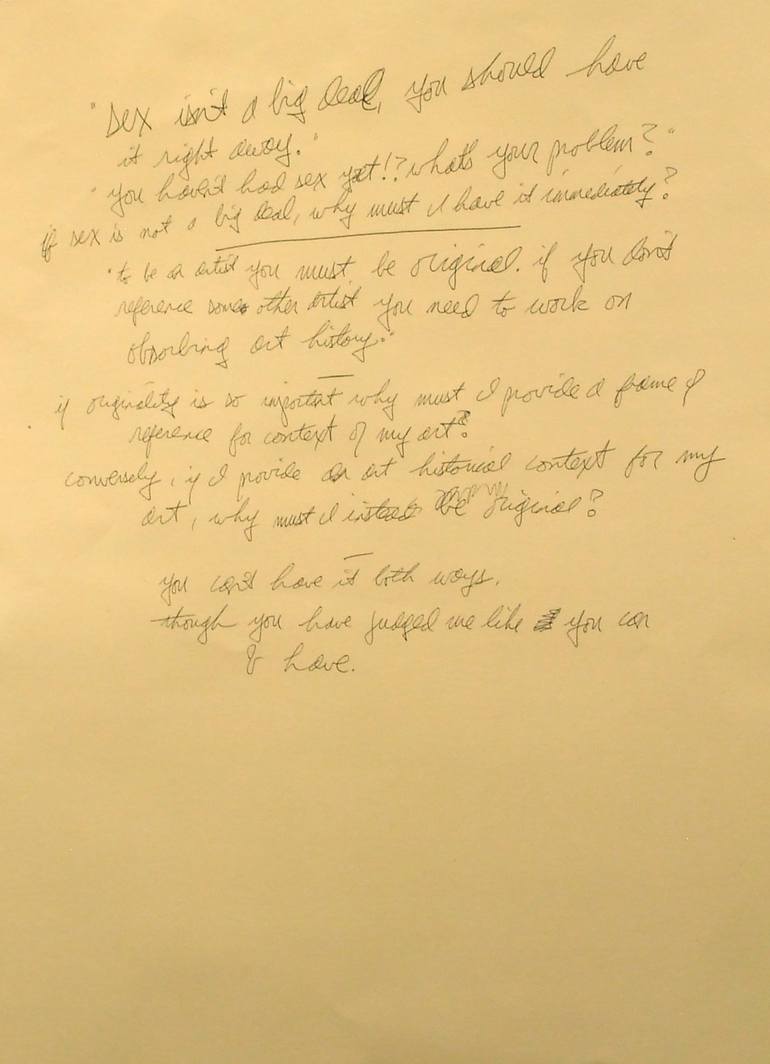 "sex isn't a big deal, you should have
it right away."
"you haven't had sex yet!? what's your problem?"
if sex is not a big deal, why must I have it immediately?
"to be an artist you must be original. if you don't
reference some other artist you need to work on
absorbing art history."
if originality is so important why must I provide a frame of
reference for context of my art?
conversely, if I provide an art historical context for my
art, why must I instead be original?
you can't have it both ways.
though you have judged me like you can
& have.